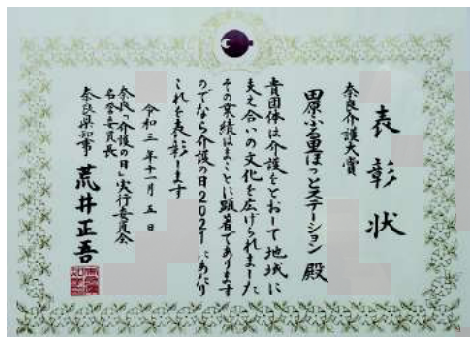 表彰状
奈良介護大賞
田原ふる里ほっとステーション 殿
貴団体は介護をとおして地域に
支え合いの文化を広げられました
その業績はまことに顕著であります
のでなら介護の日2021にあたり
これを表彰します
令和三年十一月五日
奈良「介護の日」実行委員会
名誉委員長
奈良県知事 荒井正吾